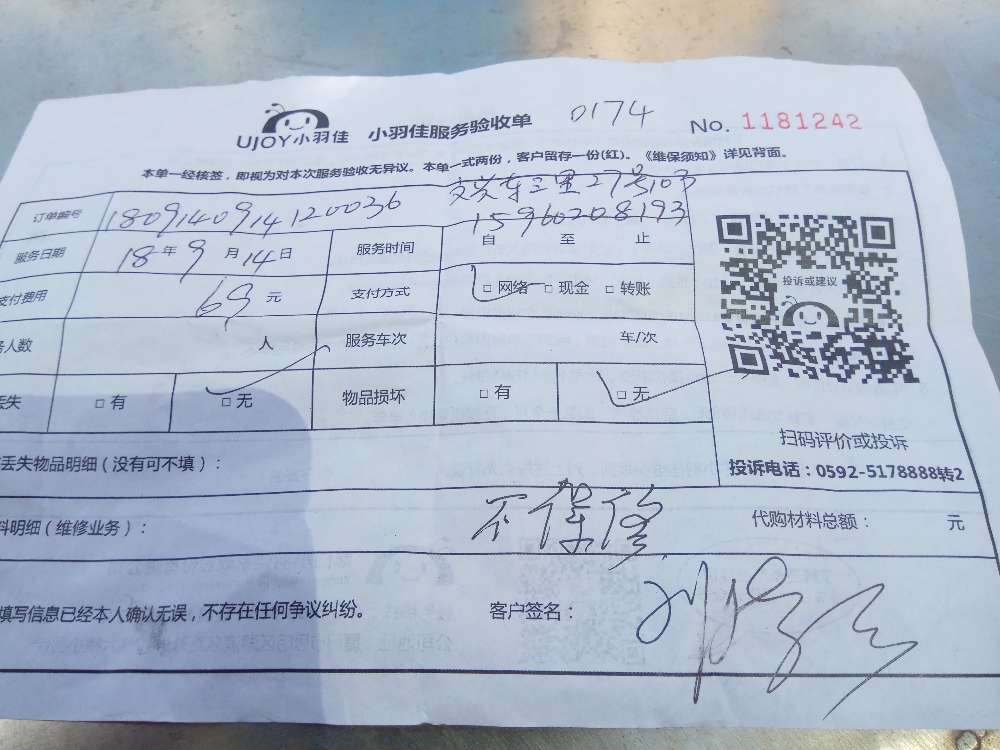 UJOY小羽佳 小羽佳服务验收单 0174 No. 1181242
本单一经核签，即视为对本次服务验收无异议。本单一式两份，客户留存一份(红)。《维保须知》详见背面。
东三里27号103
订单编号 1809140914120036 15960208193
服务日期 18年9月14日 服务时间 自 至 止
支付费用 69元 支付方式 □网络 □现金 □转账
人数 人 服务车次 车/次
丢失 □有 □无 物品损坏 □有 □无
投诉或建议
扫码评价或投诉
投诉电话：0592-5178888转2
丢失物品明细（没有可不填）：
料明细（维修业务）： 不保修 代购材料总额： 元
填写信息已经本人确认无误，不存在任何争议纠纷。 客户签名：